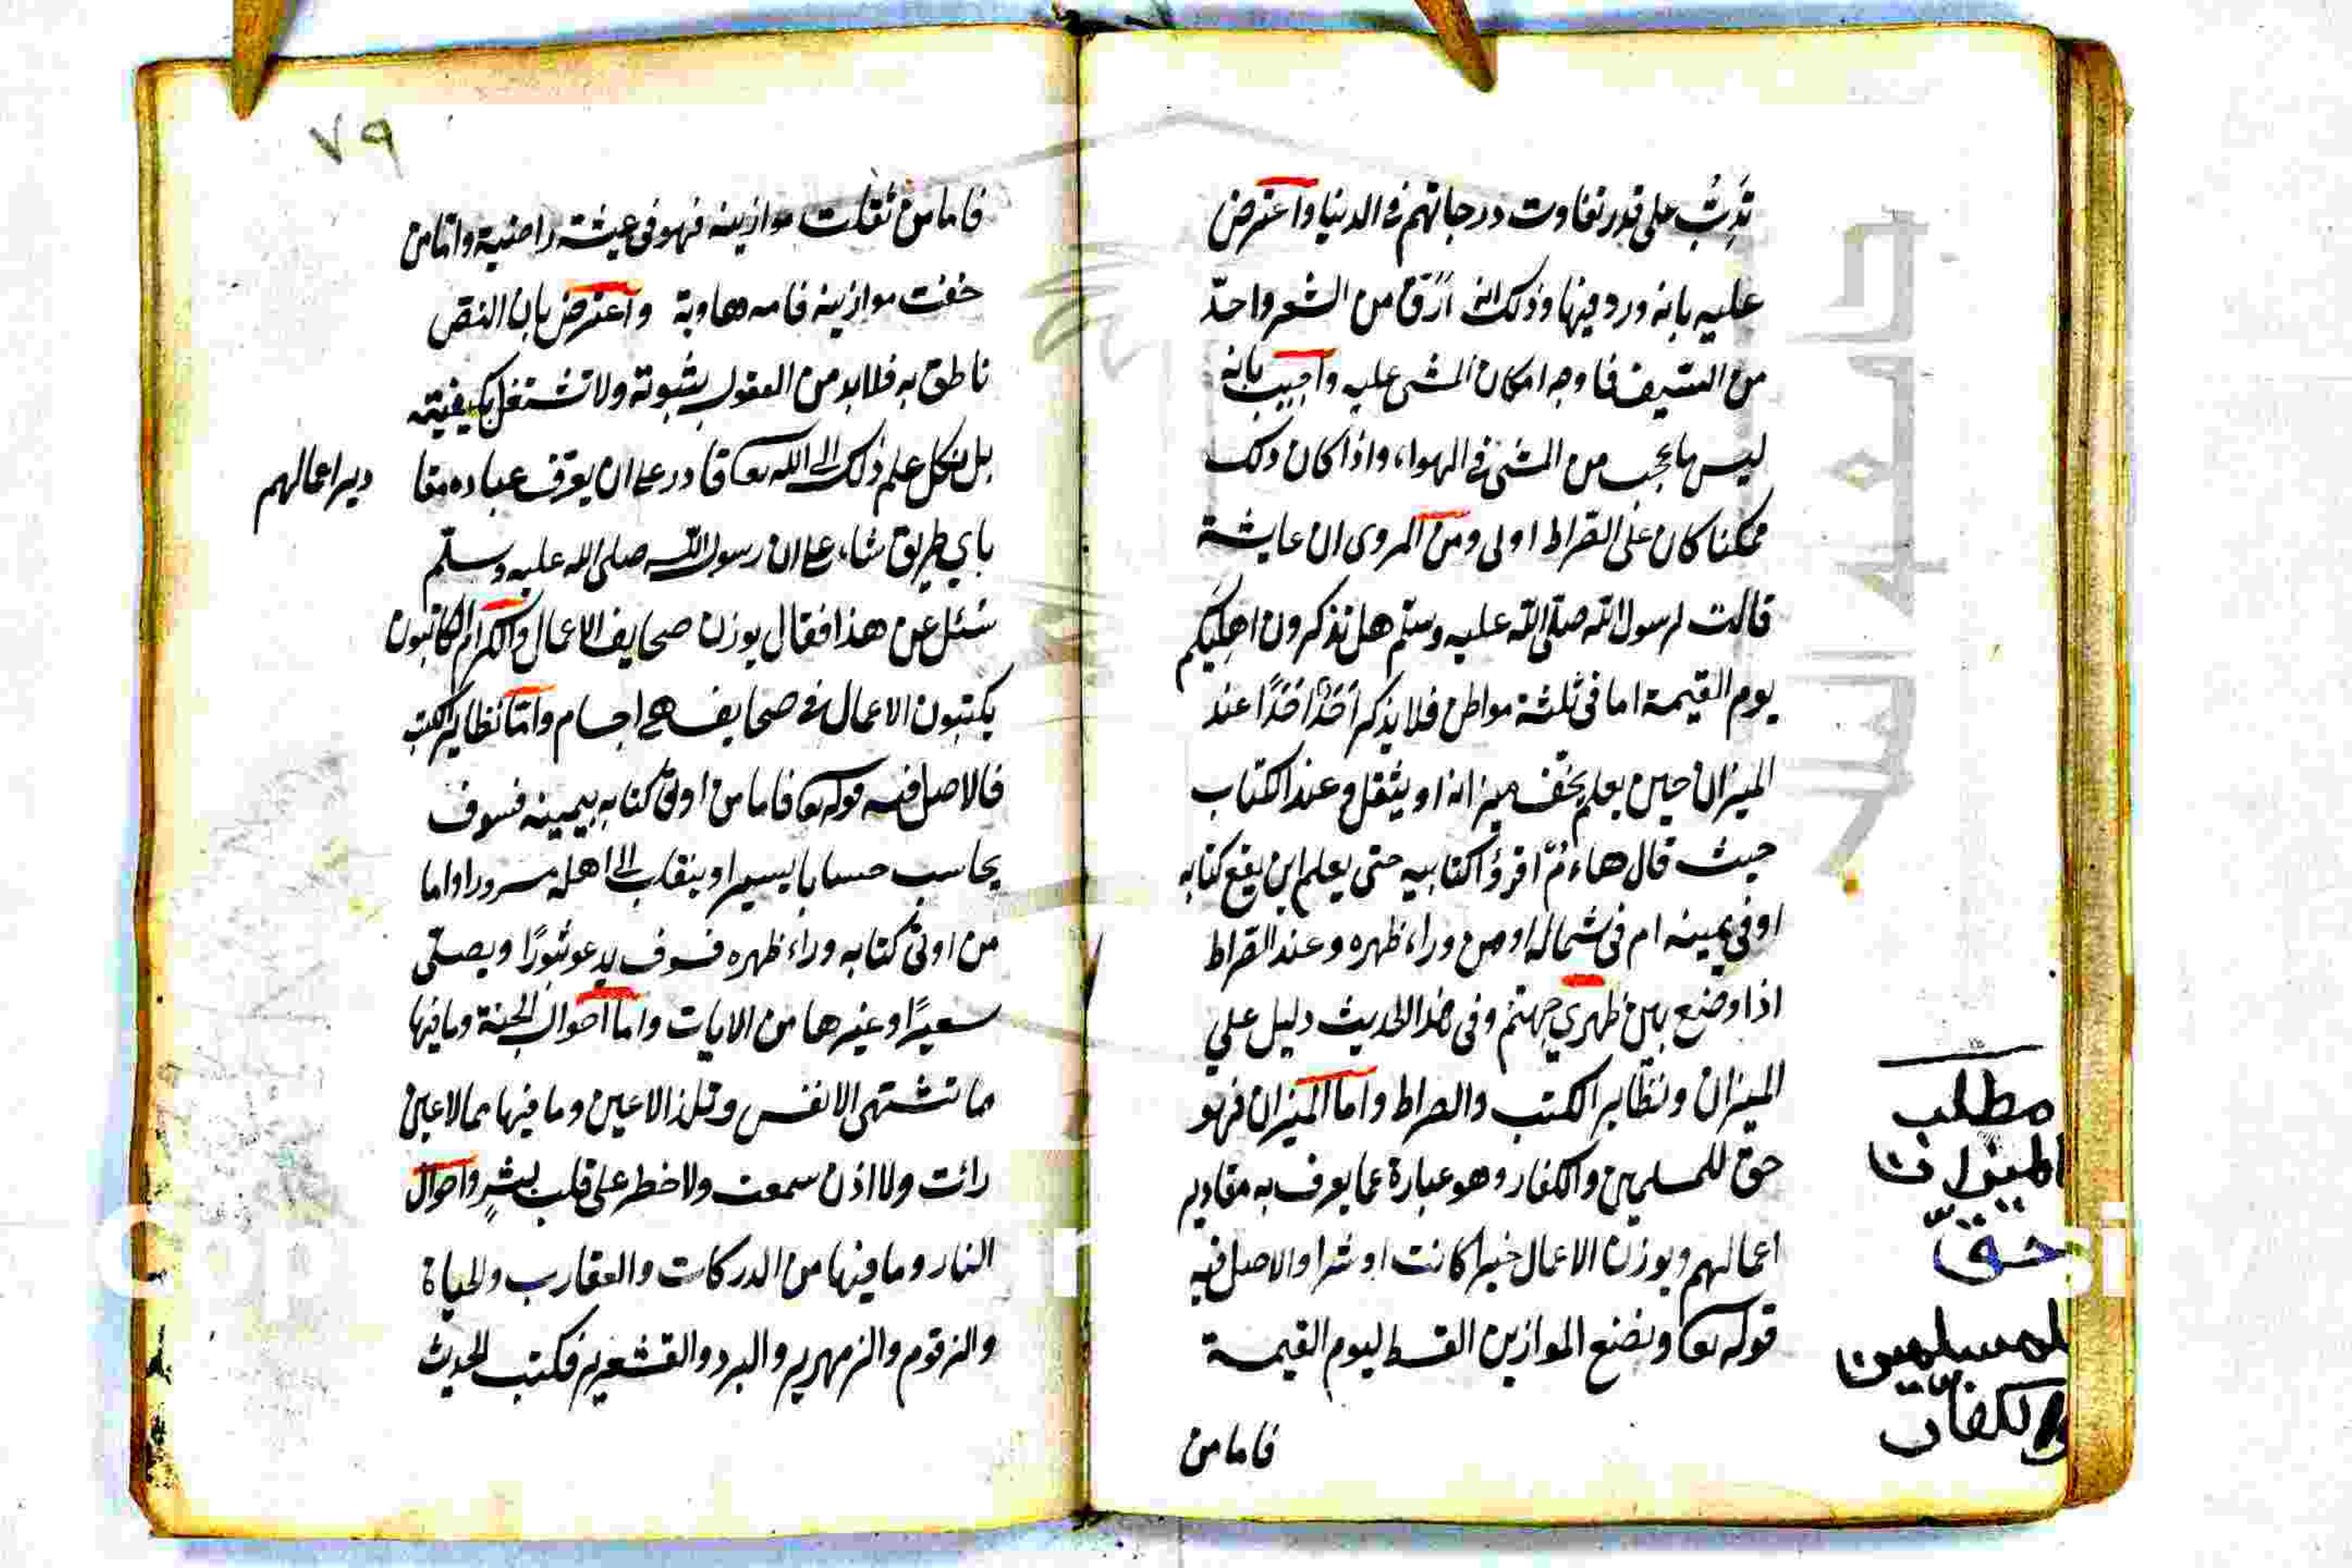 تدبّ على قدر تفاوت درجاتهم فى الدنيا واعترض
عليه بانه ورد فيها وذلك انه ارق من الشعر واحدّ
من السيف فما وجه امكان المشى عليه واجيب بانه
ليس باعجب من المشى فى الهواء واذا كان ذلك
ممكنا كان على الصراط اولى ومن المروى ان عايشة
قالت لرسول الله صلى الله عليه وسلم هل تذكرون اهليكم
يوم القيمة اما فى ثلثة مواطن فلا يذكر احدٌ احدًا عند
الميزان حين يعلم يخف ميزانه او يثقل وعند الكتاب
حيث قال هاءمُ اقرؤا كتابيه حتى يعلم اين يقع كتابه
اوفى يمينه ام فى شماله او من وراء ظهره وعند الصراط
اذا وضع بين ظهري جهنم وفى هذا الحديث دليل على
الميزان وتطاير الكتب والصراط واما الميزان فهو
حق للمسلمين والكفار وهو عبارة عما يعرف به مقادير
اعمالهم ويوزن الاعمال خيرا كانت او شرا والاصل فيه
قوله تعا ونضع الموازين القسط ليوم القيمة
فاما من
مطلب
الميزان
حقّ
لمسلمين
والكفار
٧٩
فاما من ثقلت موازينه فهو فى عيشة راضية واما من
خفت موازينه فامه هاوية واعترض بان النص
ناطق به فلابد من القول بثبوته ولا تشتغل بكيفيته
بل نكل علم ذلك الى الله تعا قادر على ان يعرّف عباده مقا
دير اعمالهم
باي طريق شاء على ان رسول الله صلى الله عليه وسلم
سئل عن هذا فقال يوزن صحايف الاعمال والكرام الكاتبون
يكتبون الاعمال فى صحايف هى اجسام واما تطاير الكتب
فالاصل فيه قوله تعا فاما من اوتى كتابه بيمينه فسوف
يحاسب حسابا يسيرا وينقلب الى اهله مسرورا واما
من اوتى كتابه وراء ظهره فسوف يدعو ثبورًا ويصلى
سعيرًا وغيرها من الايات واما احوال الجنة وما فيها
ما تشتهى الانفس وتلذ الاعين وما فيها مما لا عين
رأت ولا اذن سمعت ولا خطر على قلب بشرٍ واحوال
النار وما فيها من الدركات والعقارب والحياة
والزقوم والزمهرير والبرد والقشعرير فكتب الحديث